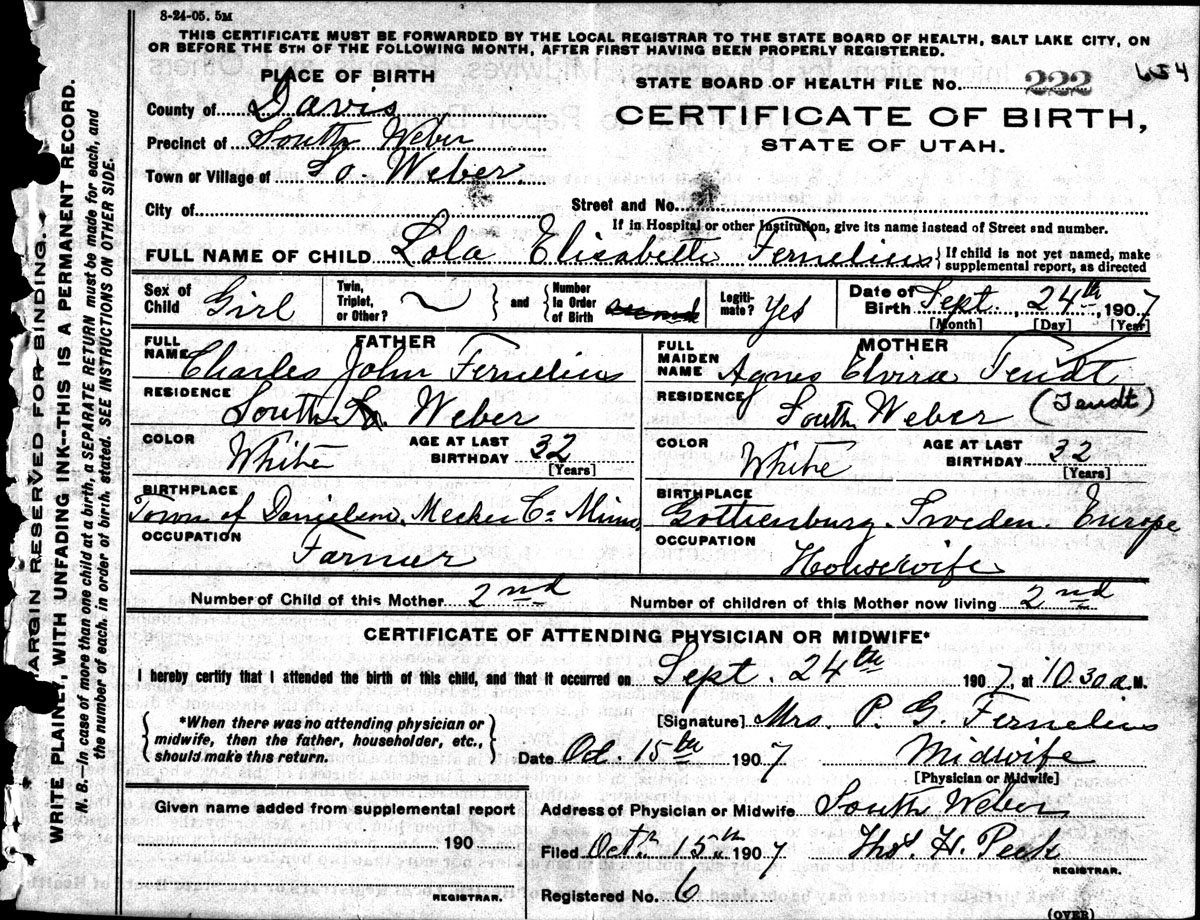 8-24-05. 5M
THIS CERTIFICATE MUST BE FORWARDED BY THE LOCAL REGISTRAR TO THE STATE BOARD OF HEALTH, SALT LAKE CITY, ON
OR BEFORE THE 5TH OF THE FOLLOWING MONTH, AFTER FIRST HAVING BEEN PROPERLY REGISTERED.
PLACE OF BIRTH
STATE BOARD OF HEALTH FILE No. 222 654
County of Davis
CERTIFICATE OF BIRTH,
Precinct of South Weber
STATE OF UTAH.
Town or Village of So. Weber.
City of
Street and No.
If in Hospital or other Institution, give its name instead of Street and number.
FULL NAME OF CHILD Lola Elisabette Fernelius } If child is not yet named, make supplemental report, as directed
Sex of Child Girl Twin, Triplet, or Other? } and { Number in Order of Birth Legiti- mate? Yes Date of Birth Sept., 24th, 1907
[Month] [Day] [Year]
FATHER
MOTHER
FULL NAME Charles John Fernelius
FULL MAIDEN NAME Agnes Elvira Teudt
RESIDENCE South So. Weber
RESIDENCE South Weber (Teudt)
COLOR White AGE AT LAST BIRTHDAY 32 [Years]
COLOR White AGE AT LAST BIRTHDAY 32 [Years]
BIRTHPLACE Town of Danielson, Meeker Co Minn,
BIRTHPLACE Gottienburg. Sweden. Europe
OCCUPATION Farmer
OCCUPATION Housewife
Number of Child of this Mother 2nd
Number of children of this Mother now living 2nd
CERTIFICATE OF ATTENDING PHYSICIAN OR MIDWIFE*
I hereby certify that I attended the birth of this child, and that it occurred on Sept. 24th 1907, at 10.30a.M.
{ *When there was no attending physician or midwife, then the father, householder, etc., should make this return. }
[Signature] Mrs P. G. Fernelius
Date Oct. 15th 1907 Midwife
[Physician or Midwife]
Given name added from supplemental report
190
REGISTRAR.
Address of Physician or Midwife South Weber
Filed Octh 15th 1907 Thos. H. Peek
REGISTRAR.
Registered No. 6
(OVER)
MARGIN RESERVED FOR BINDING.
WRITE PLAINLY, WITH UNFADING INK--THIS IS A PERMANENT RECORD.
N. B.--In case of more than one child at a birth, a SEPARATE RETURN must be made for each, and
the number of each, in order of birth, stated. SEE INSTRUCTIONS ON OTHER SIDE.